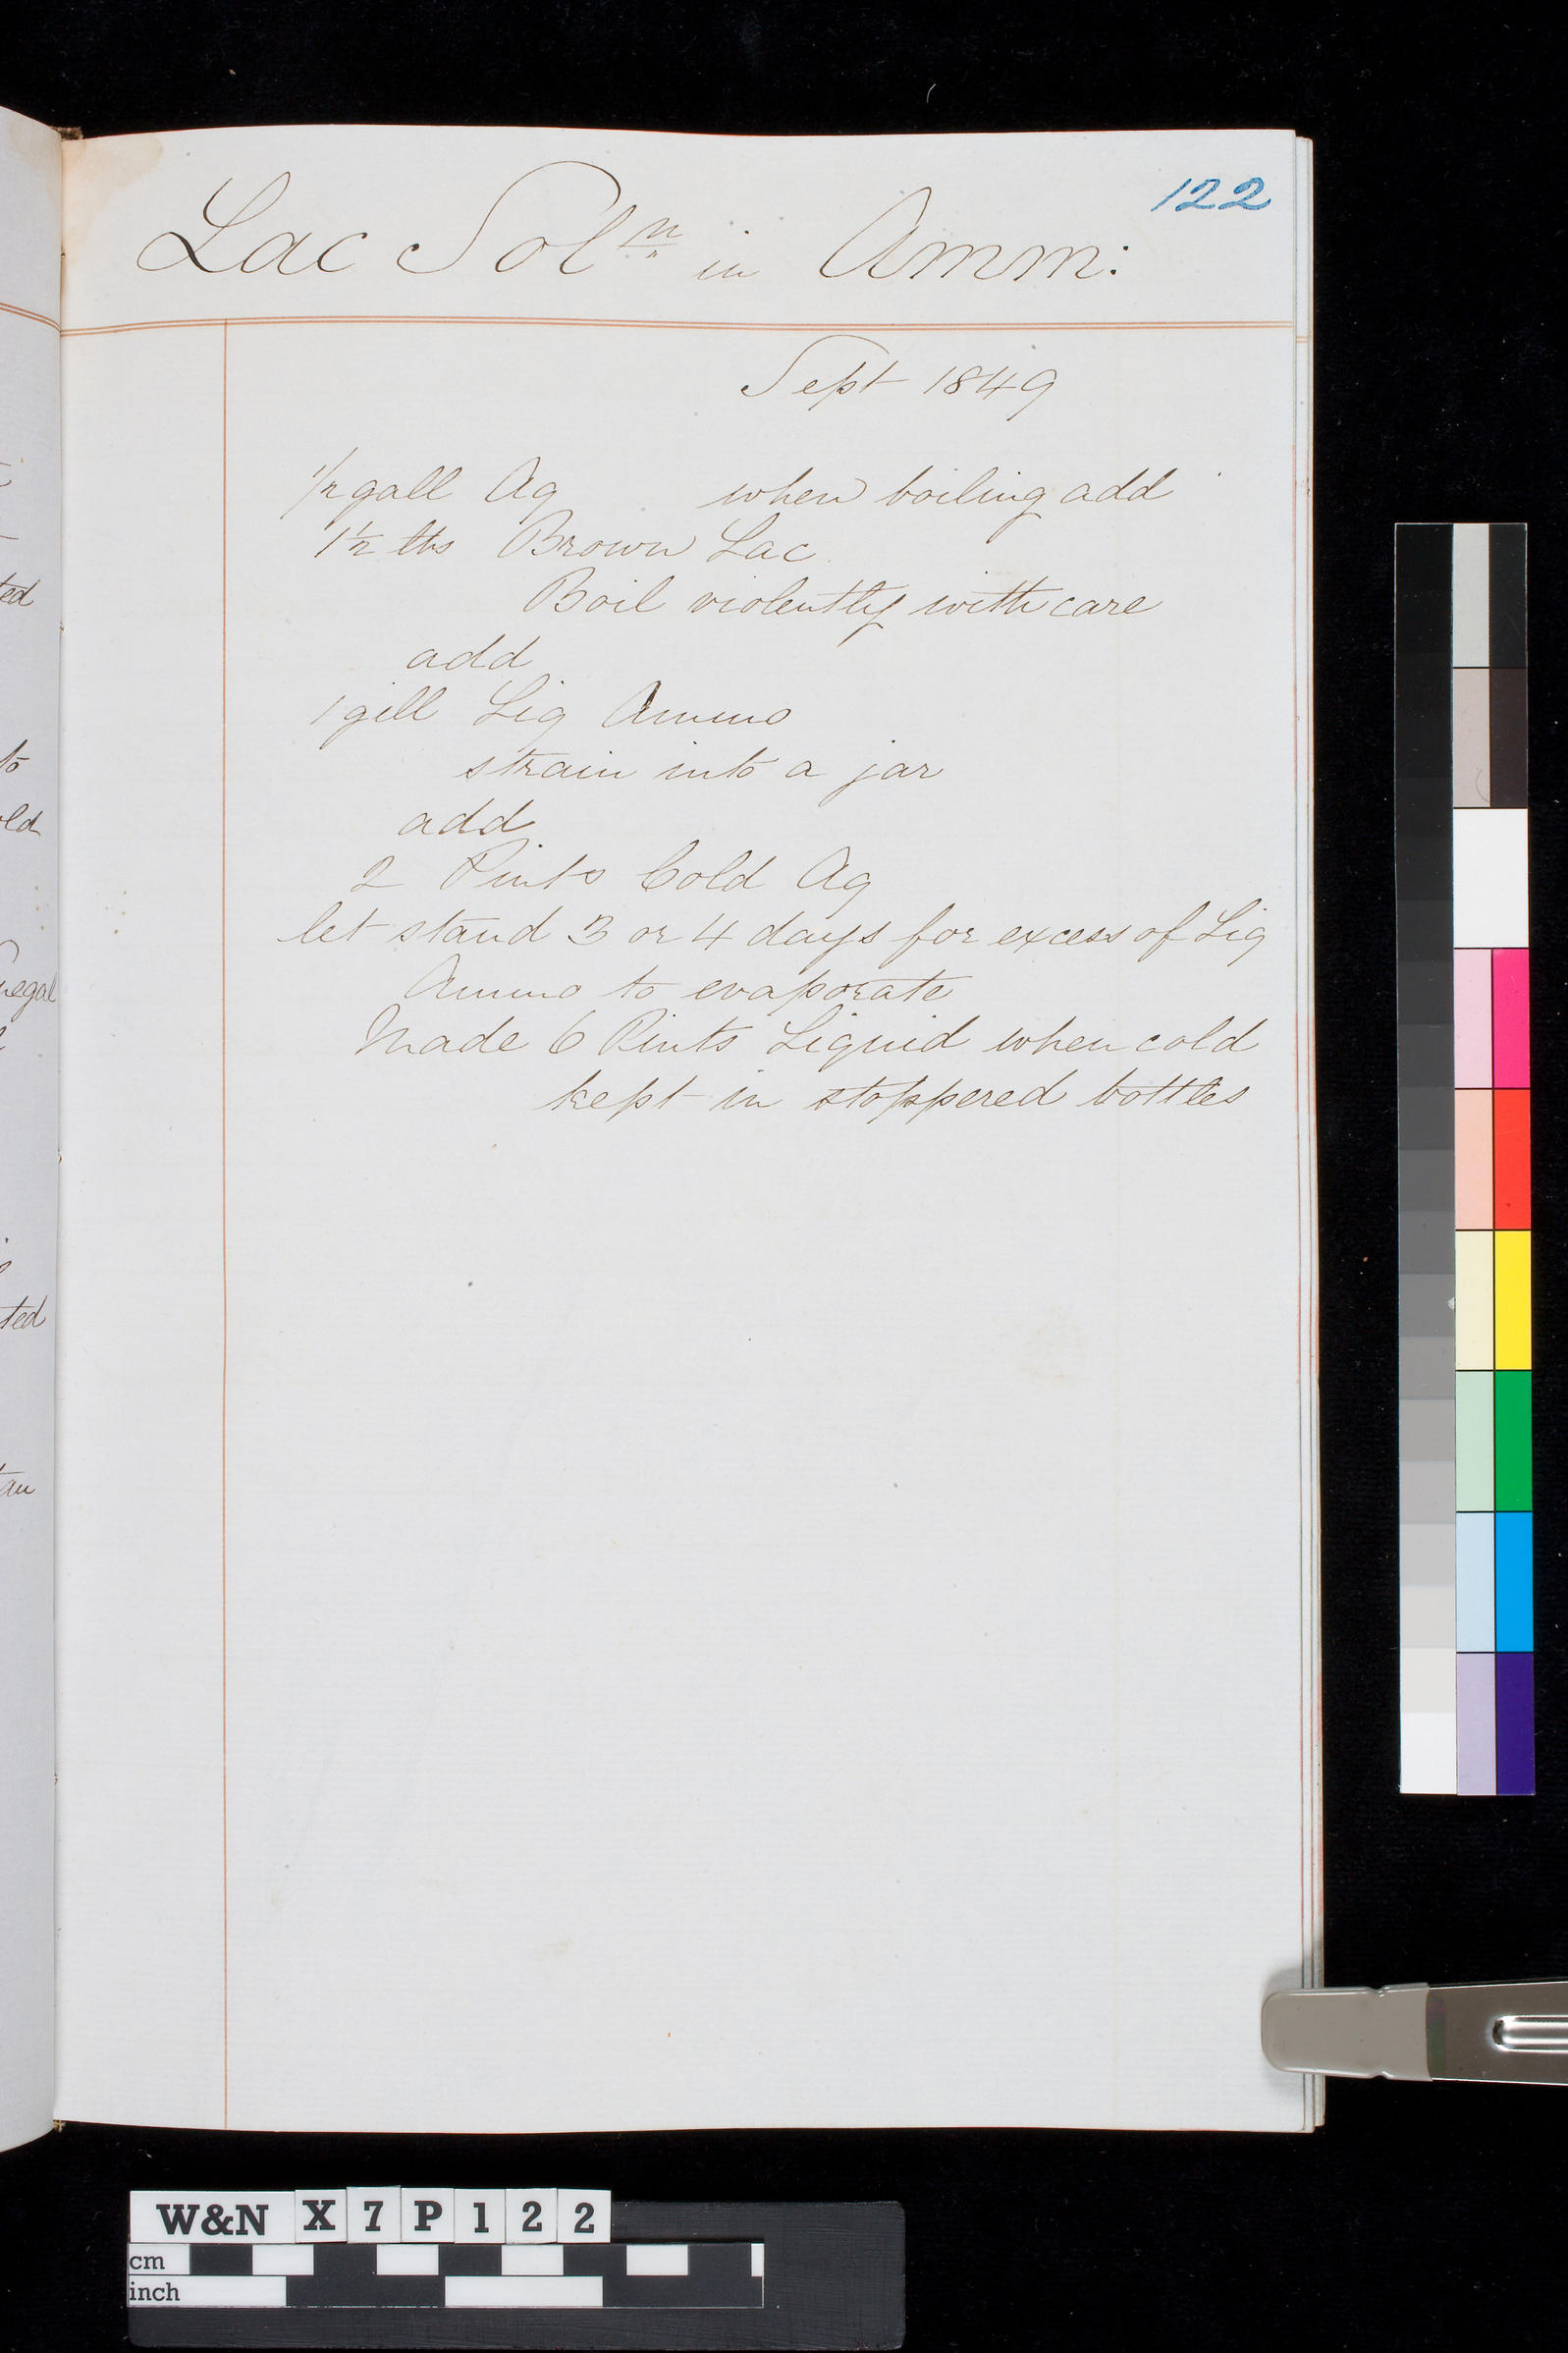 122
Lac Solⁿ in Amm:
Sept 1849
½ gall Aq when boiling add
1½ lbs Brown Lac
Boil violently with care
add
1 gill Liq Ammo
strain into a jar
add
2 Pints Cold Aq
let stand 3 or 4 days for excess of Liq
Ammo to evaporate
Made 6 Pints Liquid when cold
kept in stoppered bottles
W&N X7P122
cm
inch